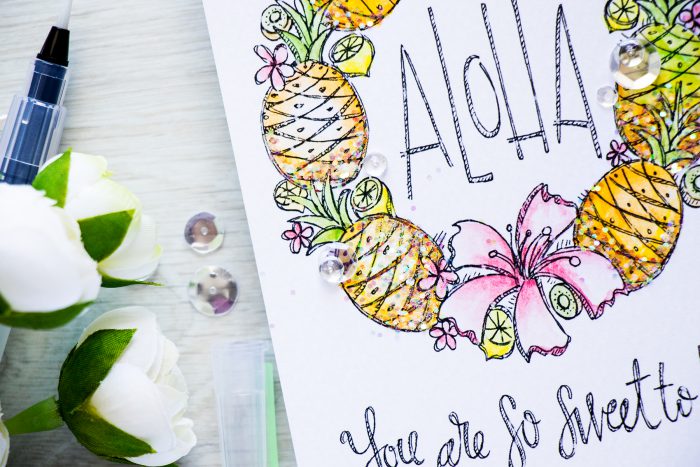 ALOHA
You are so sweet to